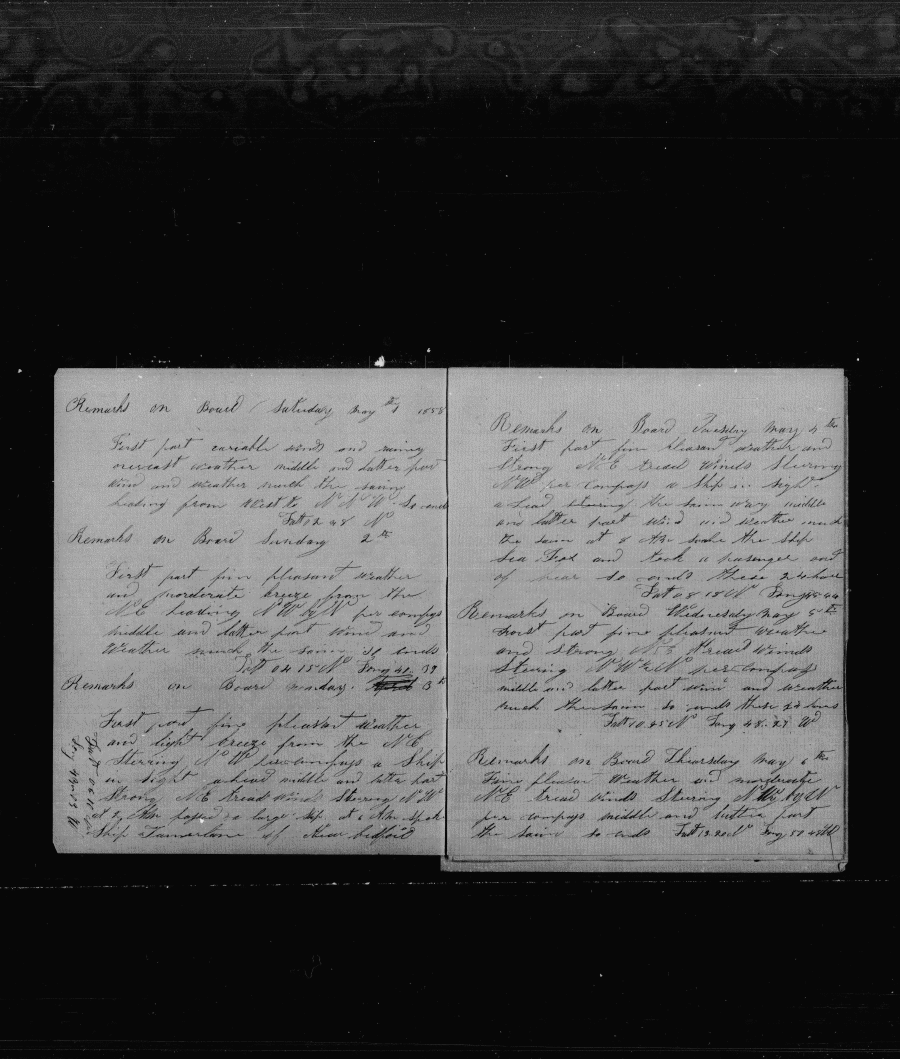 Remarks on Board Saturday May 1858
First part variable winds and rainy
overcast weather middle and latter part
wind and weather much the same
heading from West to N N W So ends
Latt 2 48 N
Remarks on Board Sunday 2th
First part fine pleasant weather
and morderate breeze from the
N E heading N W by N per compys
middle and latter part wind and
Weather much the same so ends
Latt 04 15 N Long 41 39
Remarks on Board monday 3th
First part fine pleasant weather
and light breeze from the N E
Sterring N W per compys a Ship
in sight ahead middle and latter part
Strong N E tread winds Stering N W
at 2 passed a large Ship at 6 spoke
Ship Tamerlane of New bedford
Latt 06 10
Long 43 03 W
Remarks on Board Tuesday may 4th
First part fine pleasant weather and
Strong N E tread winds Stering
N W per compys a Ship in sight
a head stering the same way middle
and latter part wind and weather much
the same at 8 spoke the ship
Sea Fox and took a pasenger out
of near so ends these 24 hours
Latt 08 18 N Long 44
Remarks on Board Wednesday may 5th
Forst part fine pleasant weather
and strong N E tread winds
Stering N W & N per compys
middle and latter part wind and weather
much the same so ends these 24 hours
Latt 10 25 N Long 48 27 W
Remarks on Board Thursday may 6th
Fine pleasan Weather and morderate
N E tread winds Stering N W by N
per compys middle and latter part
the same so ends Latt 12 20 N Long 50